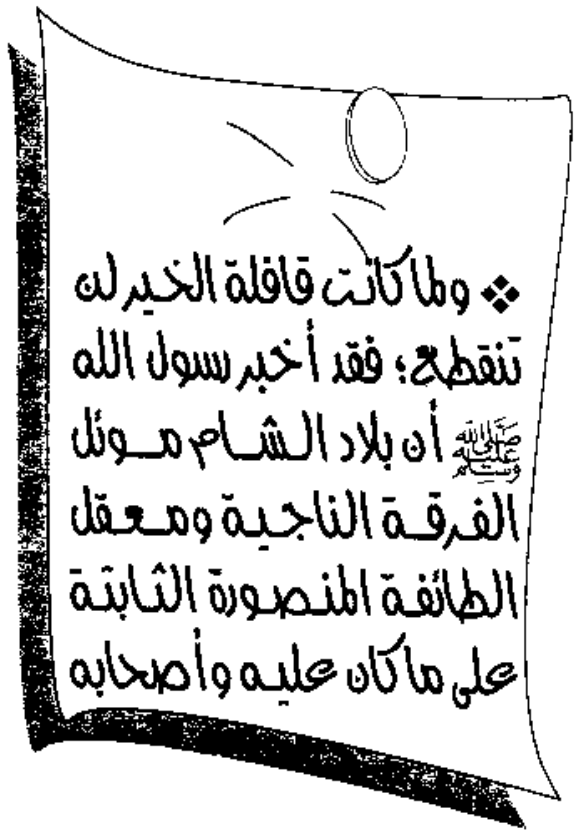 ❖ ولما كانت قافلة الخير لن
تنقطع؛ فقد أخبر رسول الله
ﷺ أن بلاد الشام مـوئل
الفرقـة الناجيـة ومـعقل
الطائفـة المنـصـورة الثـابتـة
على ما كان عليـه وأصحابه